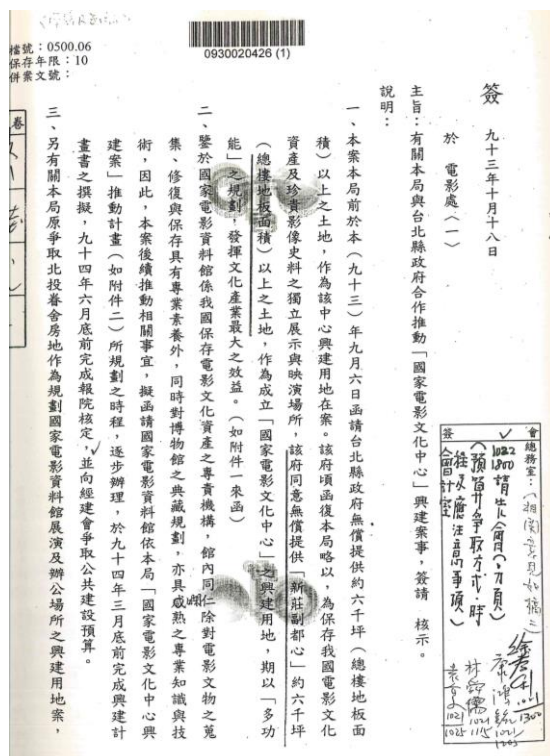 0930020426 (1)
檔號：0500.06
保存年限：10
併案文號：
簽　九十三年十月十八日
於　電影處（一）
主旨：有關本局與台北縣政府合作推動「國家電影文化中心」興建案事，簽請　核示。
說明：
一、本案本局前於本（九十三）年九月六日函請台北縣政府無償提供約六千坪（總樓地板面
積）以上之土地，作為該中心興建用地在案。該府頃函復本局略以，為保存我國電影文化
資產及珍貴影像史料之獨立展示與映演場所，該府同意無償提供「新莊副都心」約六千坪
（總樓地板面積）以上之土地，作為成立「國家電影文化中心」之興建用地，期以「多功
能」之規劃，發揮文化產業最大之效益。（如附件一來函）
二、鑒於國家電影資料館係我國保存電影文化資產之專責機構，館內同仁除對電影文物之蒐
集、修復與保存具有專業素養外，同時對博物館之典藏規劃，亦具成熟之專業知識與技
術，因此，本案後續推動相關事宜，擬函請國家電影資料館依本局「國家電影文化中心興
建案」推動計畫（如附件二）所規劃之時程，逐步辦理，於九十四年三月底前完成興建計
畫書之撰擬，九十四年六月底前完成報院核定，並向經建會爭取公共建設預算。
三、另有關本局原爭取北投眷舍房地作為規劃國家電影資料館展演及辦公場所之興建用地案，
會
總務室：（相關意見如
1022
1800
（預算爭取方式、時
程及應注意事項）
簽
會計室
1021
1300
1021
1115
1021
1025
卷